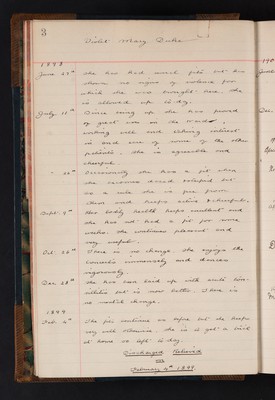 3
Violet Mary Duke
1898
June 23rd She has had several fits but has
shown no signs of violence for
which she was brought here, she
is allowed up to day.
July 15th Since being up she has proved
of great use in the wards,
working well and taking interest
in and care of some of the other
patients. She is agreeable and
cheerful.
" 22nd Occasionally she has a fit when
she becomes dazed & stupid but
as a rule she is free from
them and keeps active & cheerful.
Sept. 9th Her bodily health keeps excellent and
she has not had a fit for some
weeks. She continues pleasant and
very useful.
Oct. 26th There is no change. She enjoys the
concerts immensely and dances
vigorously.
Dec 28th She has been laid up with acute ton-
sillitis but is now better. There is
no mental change.
1899
Feb. 6th She has continued as before but she keeps
very well otherwise. She is to get a trial
at home so left to day.
Discharged Relieved
on
February 6th 1899.
190